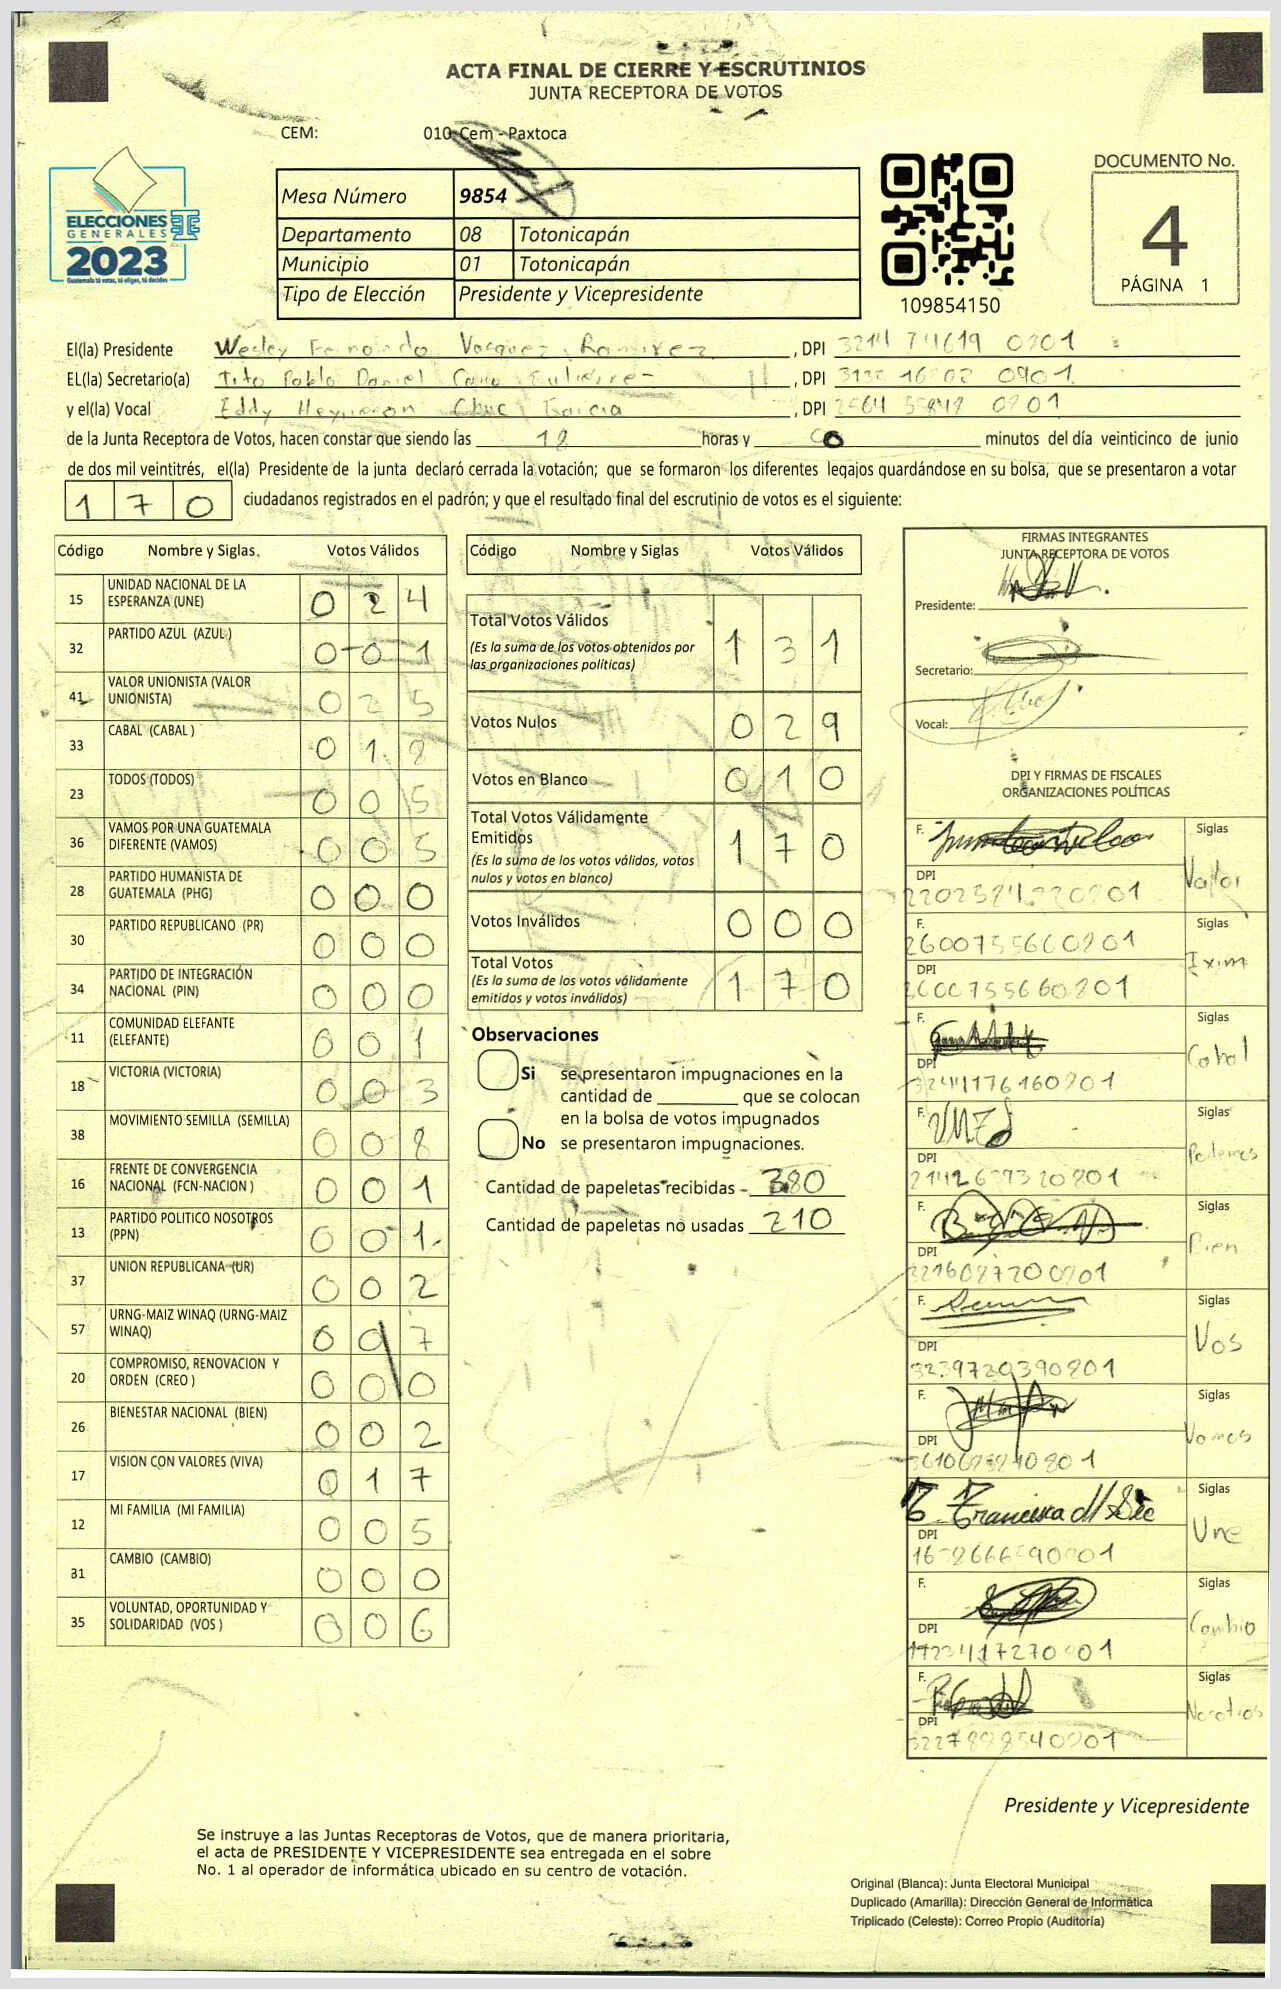 ACTA FINAL DE CIERRE Y ESCRUTINIOS
JUNTA RECEPTORA DE VOTOS
CEM: 010 Cem - Paxtoca
ELECCIONES
GENERALES
2023
Guatemala tú votas, tú eliges, tú decides
Mesa Número 9854
Departamento 08 Totonicapán
Municipio 01 Totonicapán
Tipo de Elección Presidente y Vicepresidente
109854150
DOCUMENTO No.
4
PÁGINA 1
El(la) Presidente Wesley Fernando Vasquez Ramirez, DPI
EL(la) Secretario(a) Tito Pablo Daniel, DPI
y el(la) Vocal Eddy Chuc Garcia, DPI
de la Junta Receptora de Votos, hacen constar que siendo las 18 horas y 00 minutos del día veinticinco de junio
de dos mil veintitrés, el(la) Presidente de la junta declaró cerrada la votación; que se formaron los diferentes legajos guardándose en su bolsa, que se presentaron a votar
170 ciudadanos registrados en el padrón; y que el resultado final del escrutinio de votos es el siguiente:
Código Nombre y Siglas. Votos Válidos
15 UNIDAD NACIONAL DE LA ESPERANZA (UNE) 024
32 PARTIDO AZUL (AZUL) 001
41 VALOR UNIONISTA (VALOR UNIONISTA) 025
33 CABAL (CABAL) 018
23 TODOS (TODOS) 005
36 VAMOS POR UNA GUATEMALA DIFERENTE (VAMOS) 005
28 PARTIDO HUMANISTA DE GUATEMALA (PHG) 000
30 PARTIDO REPUBLICANO (PR) 000
34 PARTIDO DE INTEGRACIÓN NACIONAL (PIN) 000
11 COMUNIDAD ELEFANTE (ELEFANTE) 001
18 VICTORIA (VICTORIA) 003
38 MOVIMIENTO SEMILLA (SEMILLA) 008
16 FRENTE DE CONVERGENCIA NACIONAL (FCN-NACION) 001
13 PARTIDO POLITICO NOSOTROS (PPN) 001
37 UNION REPUBLICANA (UR) 002
57 URNG-MAIZ WINAQ (URNG-MAIZ WINAQ) 007
20 COMPROMISO, RENOVACION Y ORDEN (CREO) 000
26 BIENESTAR NACIONAL (BIEN) 002
17 VISION CON VALORES (VIVA) 017
12 MI FAMILIA (MI FAMILIA) 005
31 CAMBIO (CAMBIO) 000
35 VOLUNTAD, OPORTUNIDAD Y SOLIDARIDAD (VOS) 006
Código Nombre y Siglas Votos Válidos
Total Votos Válidos 131
(Es la suma de los votos obtenidos por
las organizaciones políticas)
Votos Nulos 029
Votos en Blanco 010
Total Votos Válidamente
Emitidos 170
(Es la suma de los votos válidos, votos
nulos y votos en blanco)
Votos Inválidos 000
Total Votos 170
(Es la suma de los votos válidamente
emitidos y votos inválidos)
Observaciones
Si se presentaron impugnaciones en la
cantidad de ________ que se colocan
en la bolsa de votos impugnados
No se presentaron impugnaciones.
Cantidad de papeletas recibidas 380
Cantidad de papeletas no usadas 210
FIRMAS INTEGRANTES
JUNTA RECEPTORA DE VOTOS
Presidente:
Secretario:
Vocal:
DPI Y FIRMAS DE FISCALES
ORGANIZACIONES POLÍTICAS
F. Siglas
DPI Valor
F. Siglas
DPI
F. Siglas
DPI Cabal
F. Siglas
DPI
F. Siglas
DPI Bien
F. Siglas
DPI Vos
F. Siglas
DPI Vamos
Francisca Siglas
DPI Une
F. Siglas
DPI Cambio
F. Siglas
DPI Nosotros
Presidente y Vicepresidente
Se instruye a las Juntas Receptoras de Votos, que de manera prioritaria,
el acta de PRESIDENTE Y VICEPRESIDENTE sea entregada en el sobre
No. 1 al operador de informática ubicado en su centro de votación.
Original (Blanca): Junta Electoral Municipal
Duplicado (Amarilla): Dirección General de Informática
Triplicado (Celeste): Correo Propio (Auditoría)